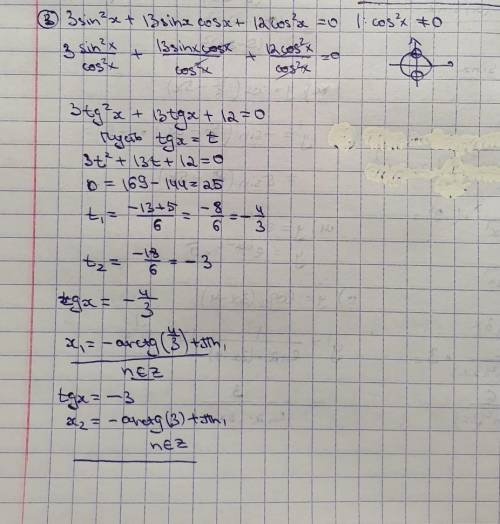 ③ 3sin²x + 13sinx cosx + 12cos²x = 0 | : cos²x ≠ 0
3 sin²x/cos²x + 13sinxcosx/cos²x + 12cos²x/cos²x = 0
3tg²x + 13tgx + 12 = 0
Пусть tgx = t
3t² + 13t + 12 = 0
D = 169 - 144 = 25
t₁ = (-13+5)/6 = -8/6 = -4/3
t₂ = -18/6 = -3
tgx = -4/3
x₁ = -arctg(4/3) + πn,
n∈Z
tgx = -3
x₂ = -arctg(3) + πn,
n∈Z